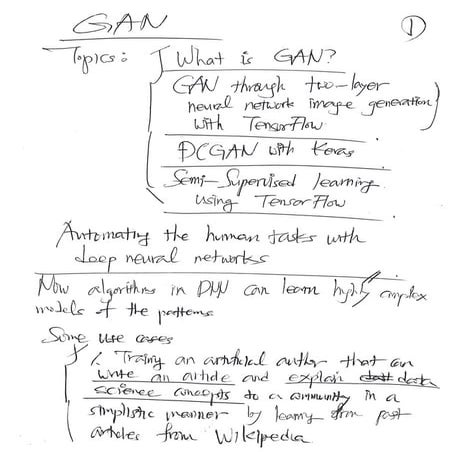 GAN
①
Topics: What is GAN?
GAN through two-layer
neural network image generation
with TensorFlow
DCGAN with Keras
Semi-Supervised learning
using TensorFlow
Automating the human tasks with
deep neural networks
Now algorithms in DNN can learn highly complex
models of the patterns
Some use cases
1. Training an artificial author that can
write an article and explain data
science concepts to a community in a
simplistic manner by learning from past
articles from Wikipedia